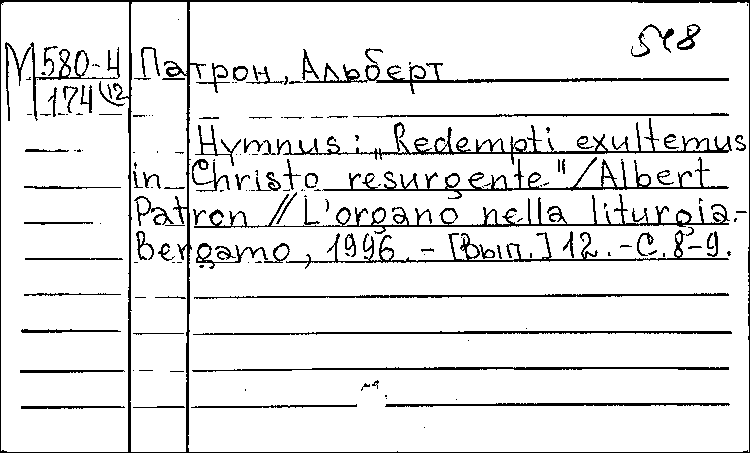 548
М 580-4 Патрон, Альберт
174 (12
Hymnus: „Redempti exultemus
in Christo resurgente" / Albert
Patron // L'organo nella liturgia.-
Bergamo, 1996. - [Вып.] 12. -С. 8-9.